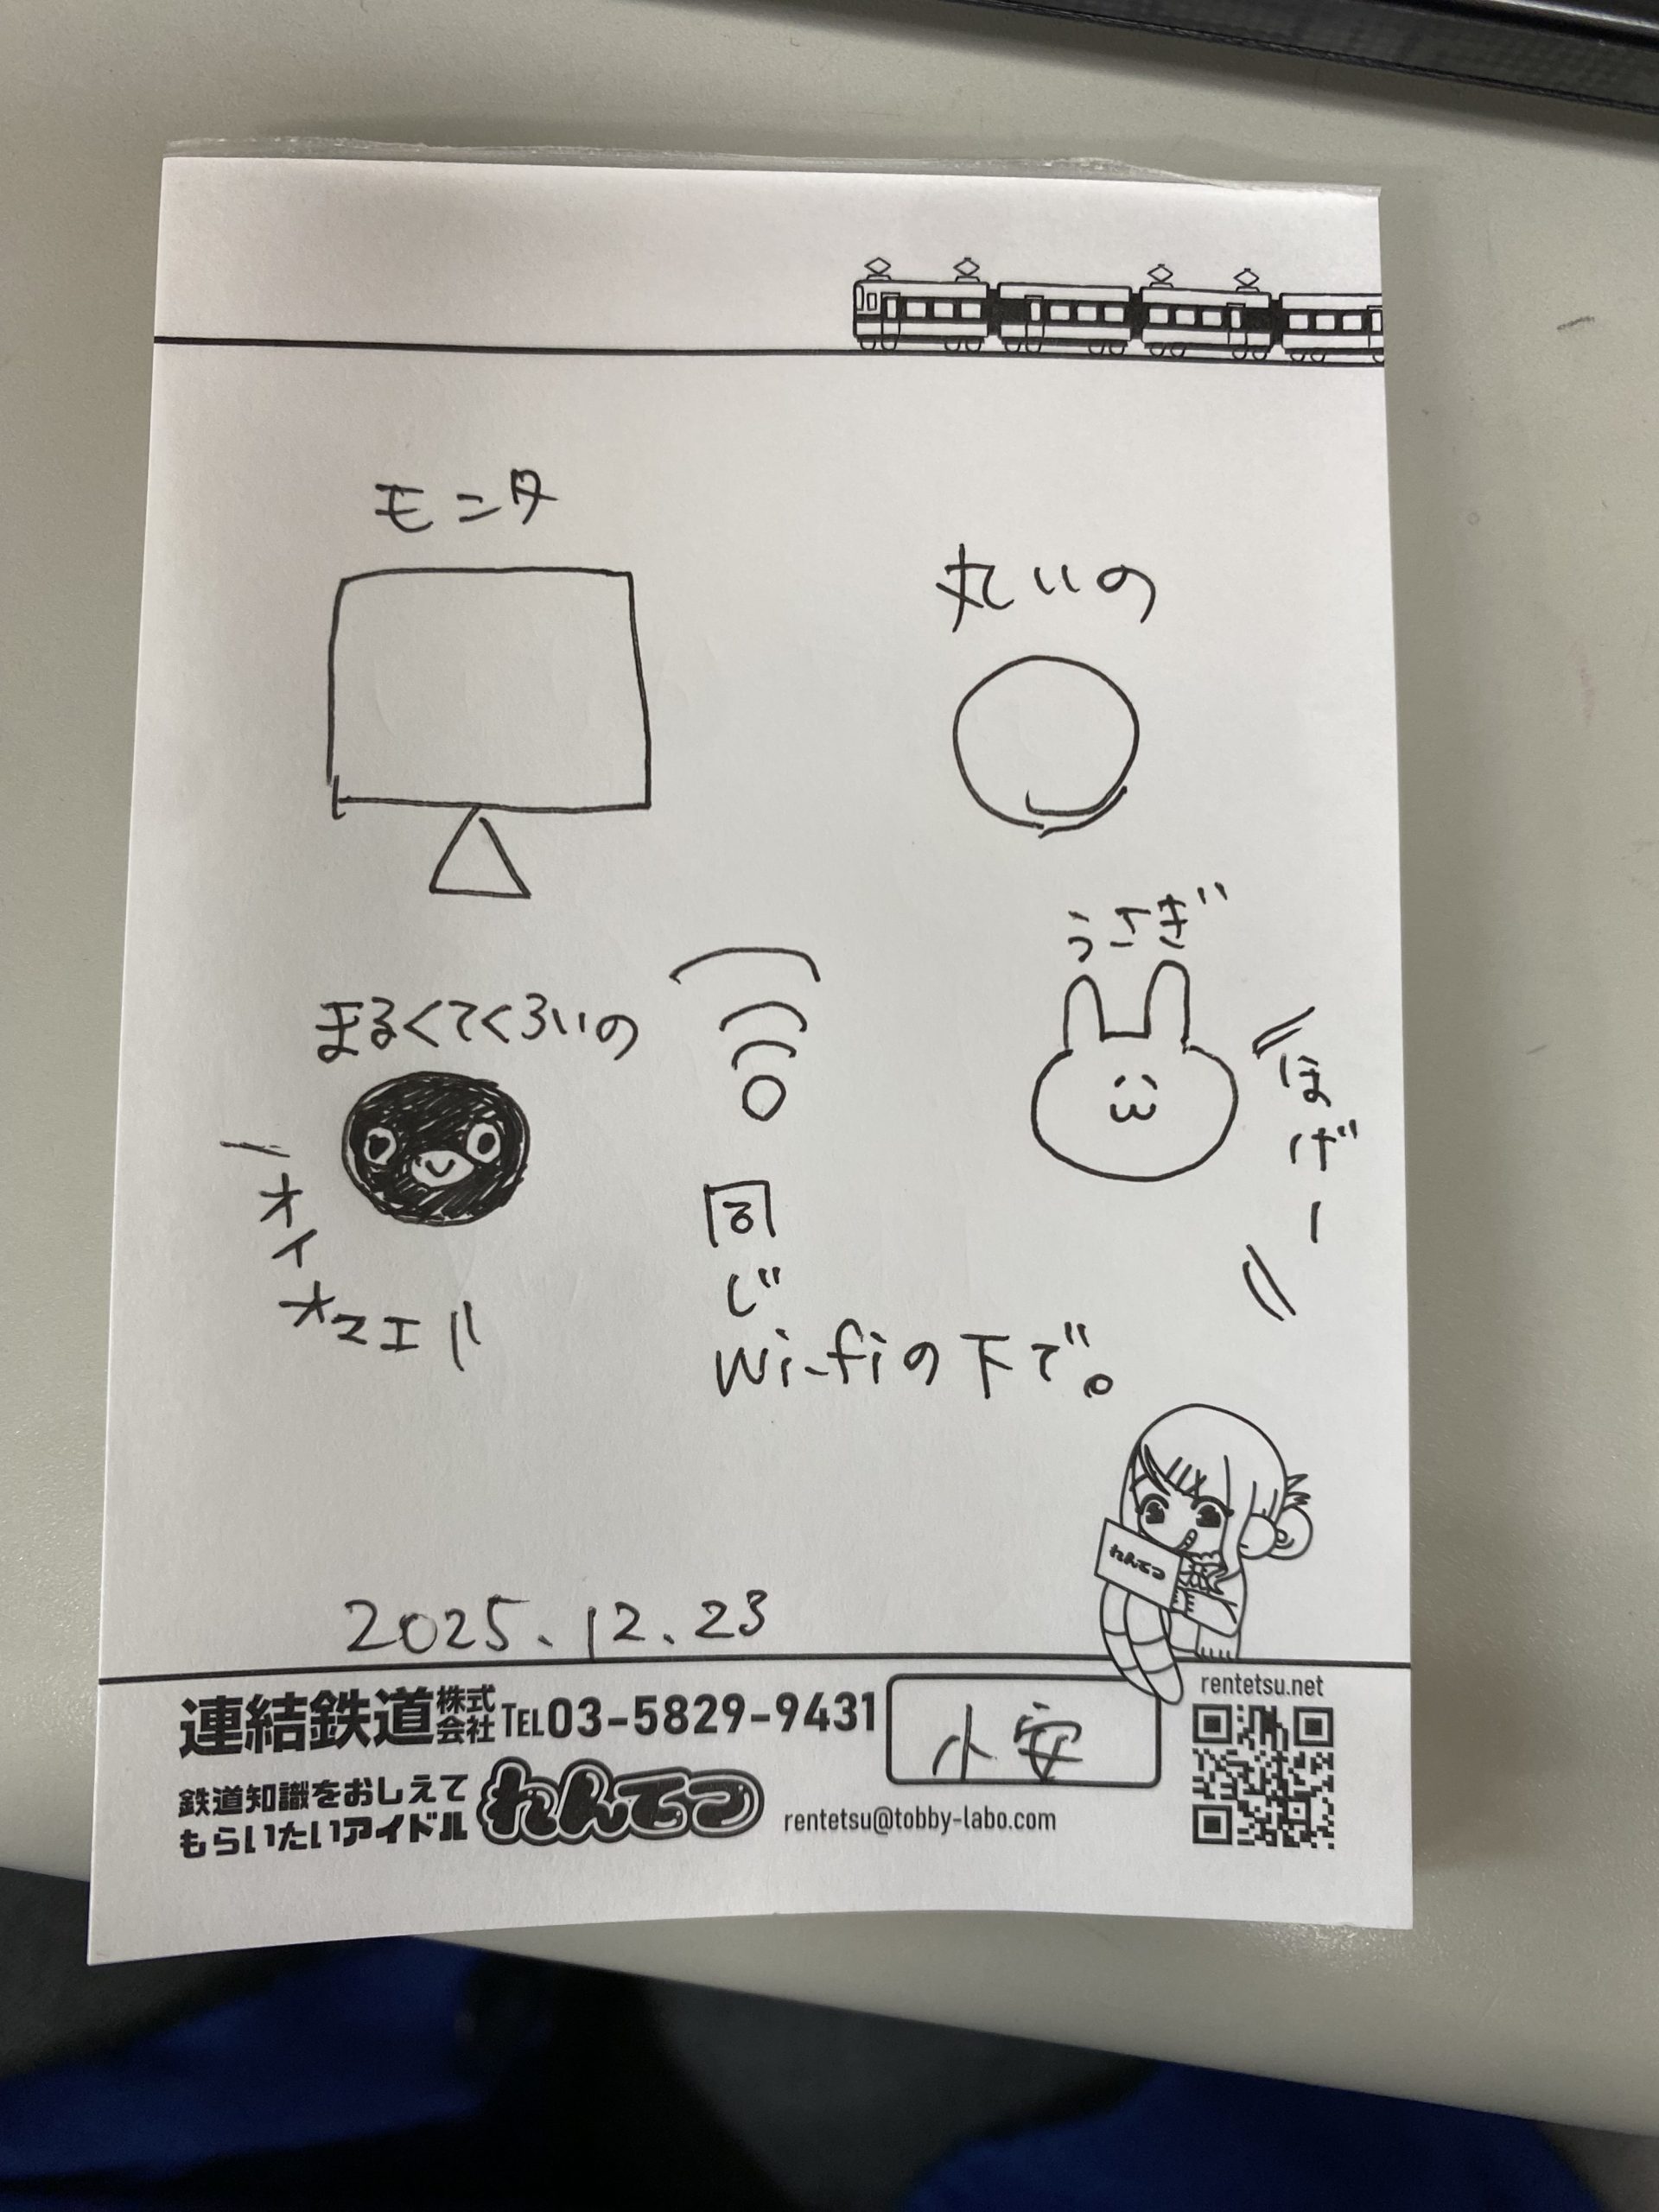 モニタ
丸いの
うさぎ
まるくてくろいの
ほげー
オイオマエ
同じ
Wi-fiの下で。
れんてつ
2025.12.23
連結鉄道株式会社 TEL03-5829-9431
小安
rentetsu.net
鉄道知識をおしえて
もらいたいアイドル
れんてつ
rentetsu@tobby-labo.com